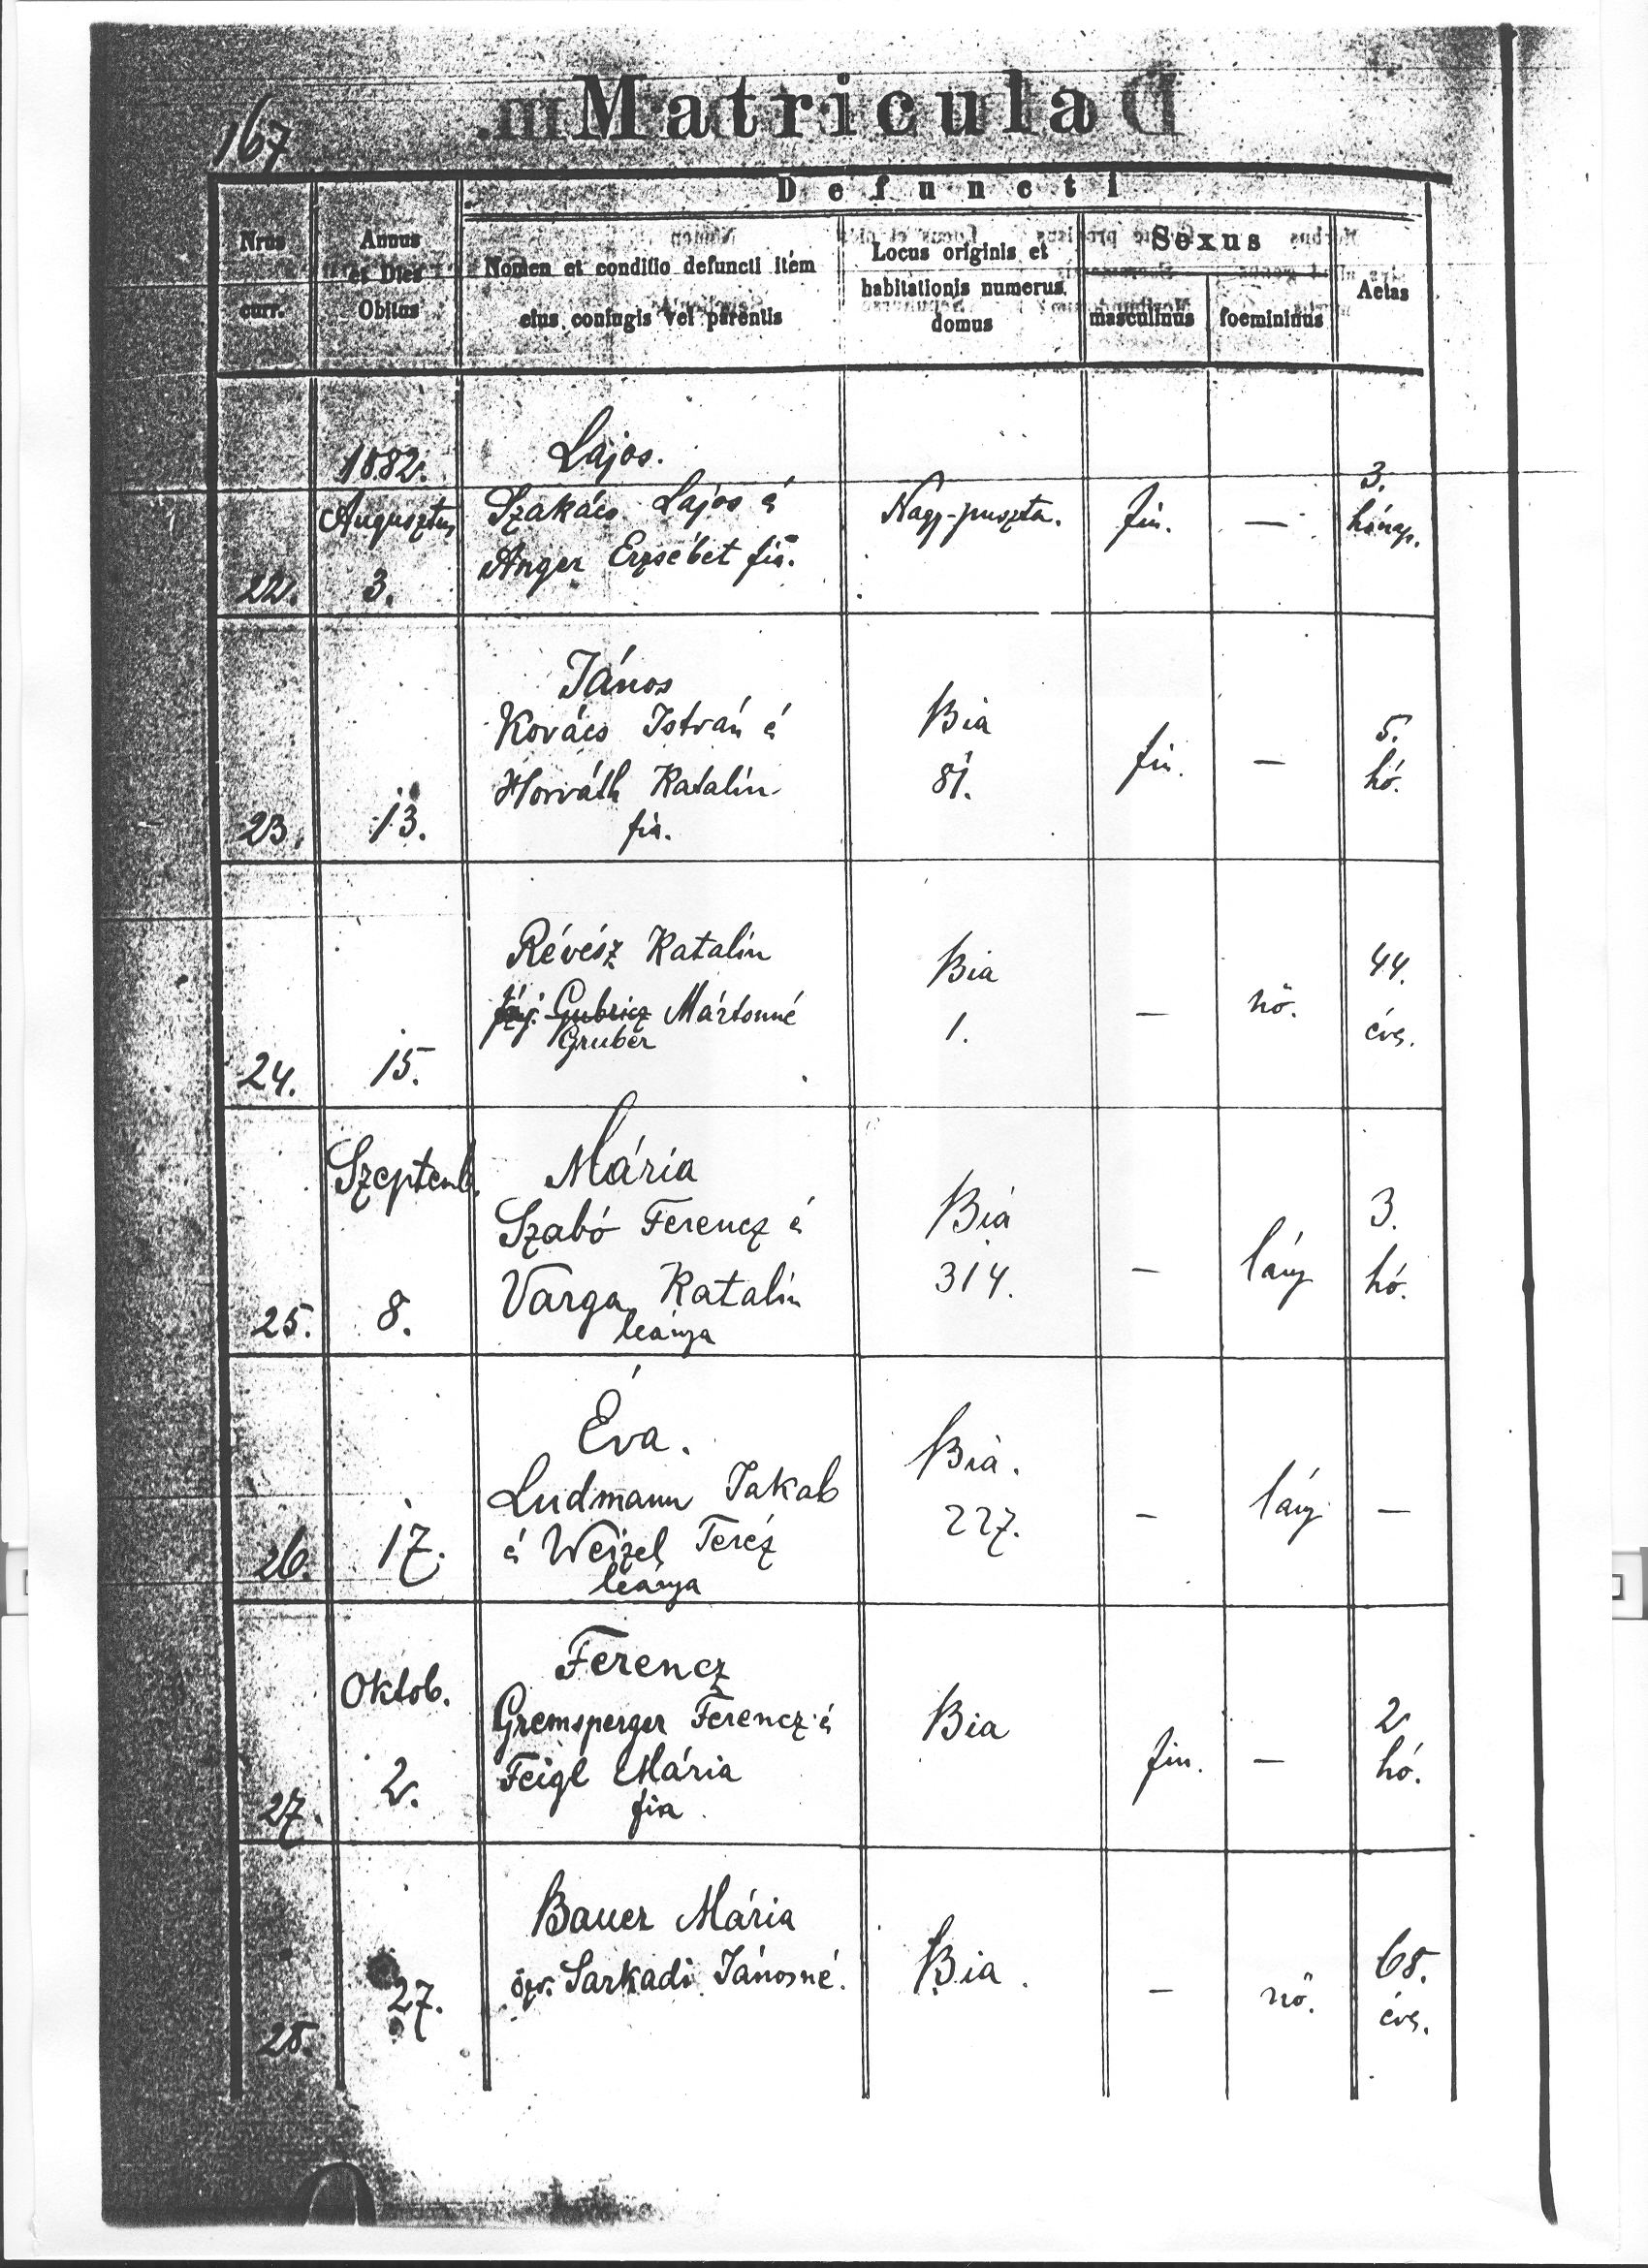 167
Matricula
Defuncti
Nrus curr.
Annus et Dies Obitus
Nomen et conditio defuncti item
eius coniugis vel parentis
Locus originis et
habitationis numerus
domus
Sexus
masculinus
foemininus
Aetas
1882.
Lajos.
Augusztus
Szakács Lajos és
Nagy-puszta.
fiu.
—
3.
hónap.
Anger Erzsébet fia.
22.
3.
János
Kovács István és
Bia
fiu.
—
5.
Horváth Katalin
81.
hó.
fia.
23.
13.
Révész Katalin
Bia
44.
Gubricz Mártonné
—
nő.
Gruber
1.
éves.
24.
15.
Szeptemb.
Mária
Szabó Ferencz és
Bia
3.
Varga Katalin
314.
—
lány
hó.
leánya
25.
8.
Éva.
Ludmann Jakab
Bia.
lány
—
és Weizel Teréz
227.
—
leánya
26.
17.
Ferencz
Oktob.
Gremsperger Ferencz és
Bia
2
Feigl Mária
fiu.
—
hó.
fia
27.
2.
Bauer Mária
özv. Sarkadi Jánosné.
Bia.
—
nő.
68.
éves.
28.
27.